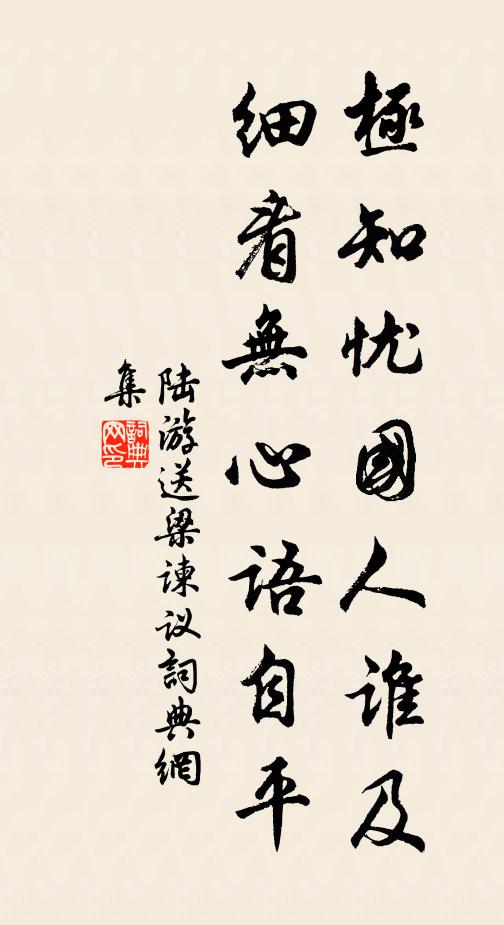 極知忧國人誰及
細看無心語自平
陆游送梁谏议詞典網
集
詞典
网印